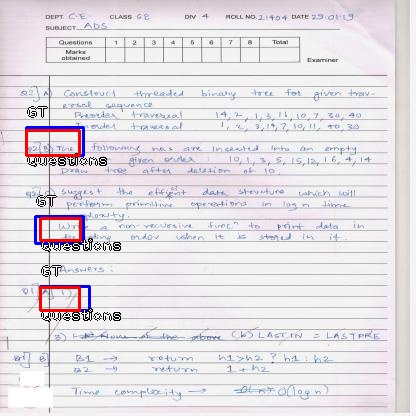 DEPT. C.E. CLASS GB DIV 4 ROLL NO. 21404 DATE 25.01.19
SUBJECT ADS
Questions 1 2 3 4 5 6 7 8 Total
Marks obtained
Examiner
Q2] A) Construct threaded binary tree for given trav-
ersal sequence
GT
Preorder traversal 14, 2, 1, 3, 11, 10, 7, 30, 40
Inorder traversal 1, 2, 3, 14, 7, 10, 11, 40, 30
Q2] B) The following nos are inserted into an empty
Questions
given order : 10, 1, 3, 5, 15, 12, 16, 4, 14
Draw tree after deletion of 10.
Suggest the efficient data structure which will
GT
perform primitive operations in log n time
complexity.
Write a non-recursive func" to print data in
order when it is stored in it.
Questions
GT
Answers :
Q1] A] 1)
Questions
3) None of the above (b) LAST.IN = LASTPRE
Q1] B] B1 → return h1>h2? h1 : h2
B2 → return 1 + h2
Time complexity → O(log n)